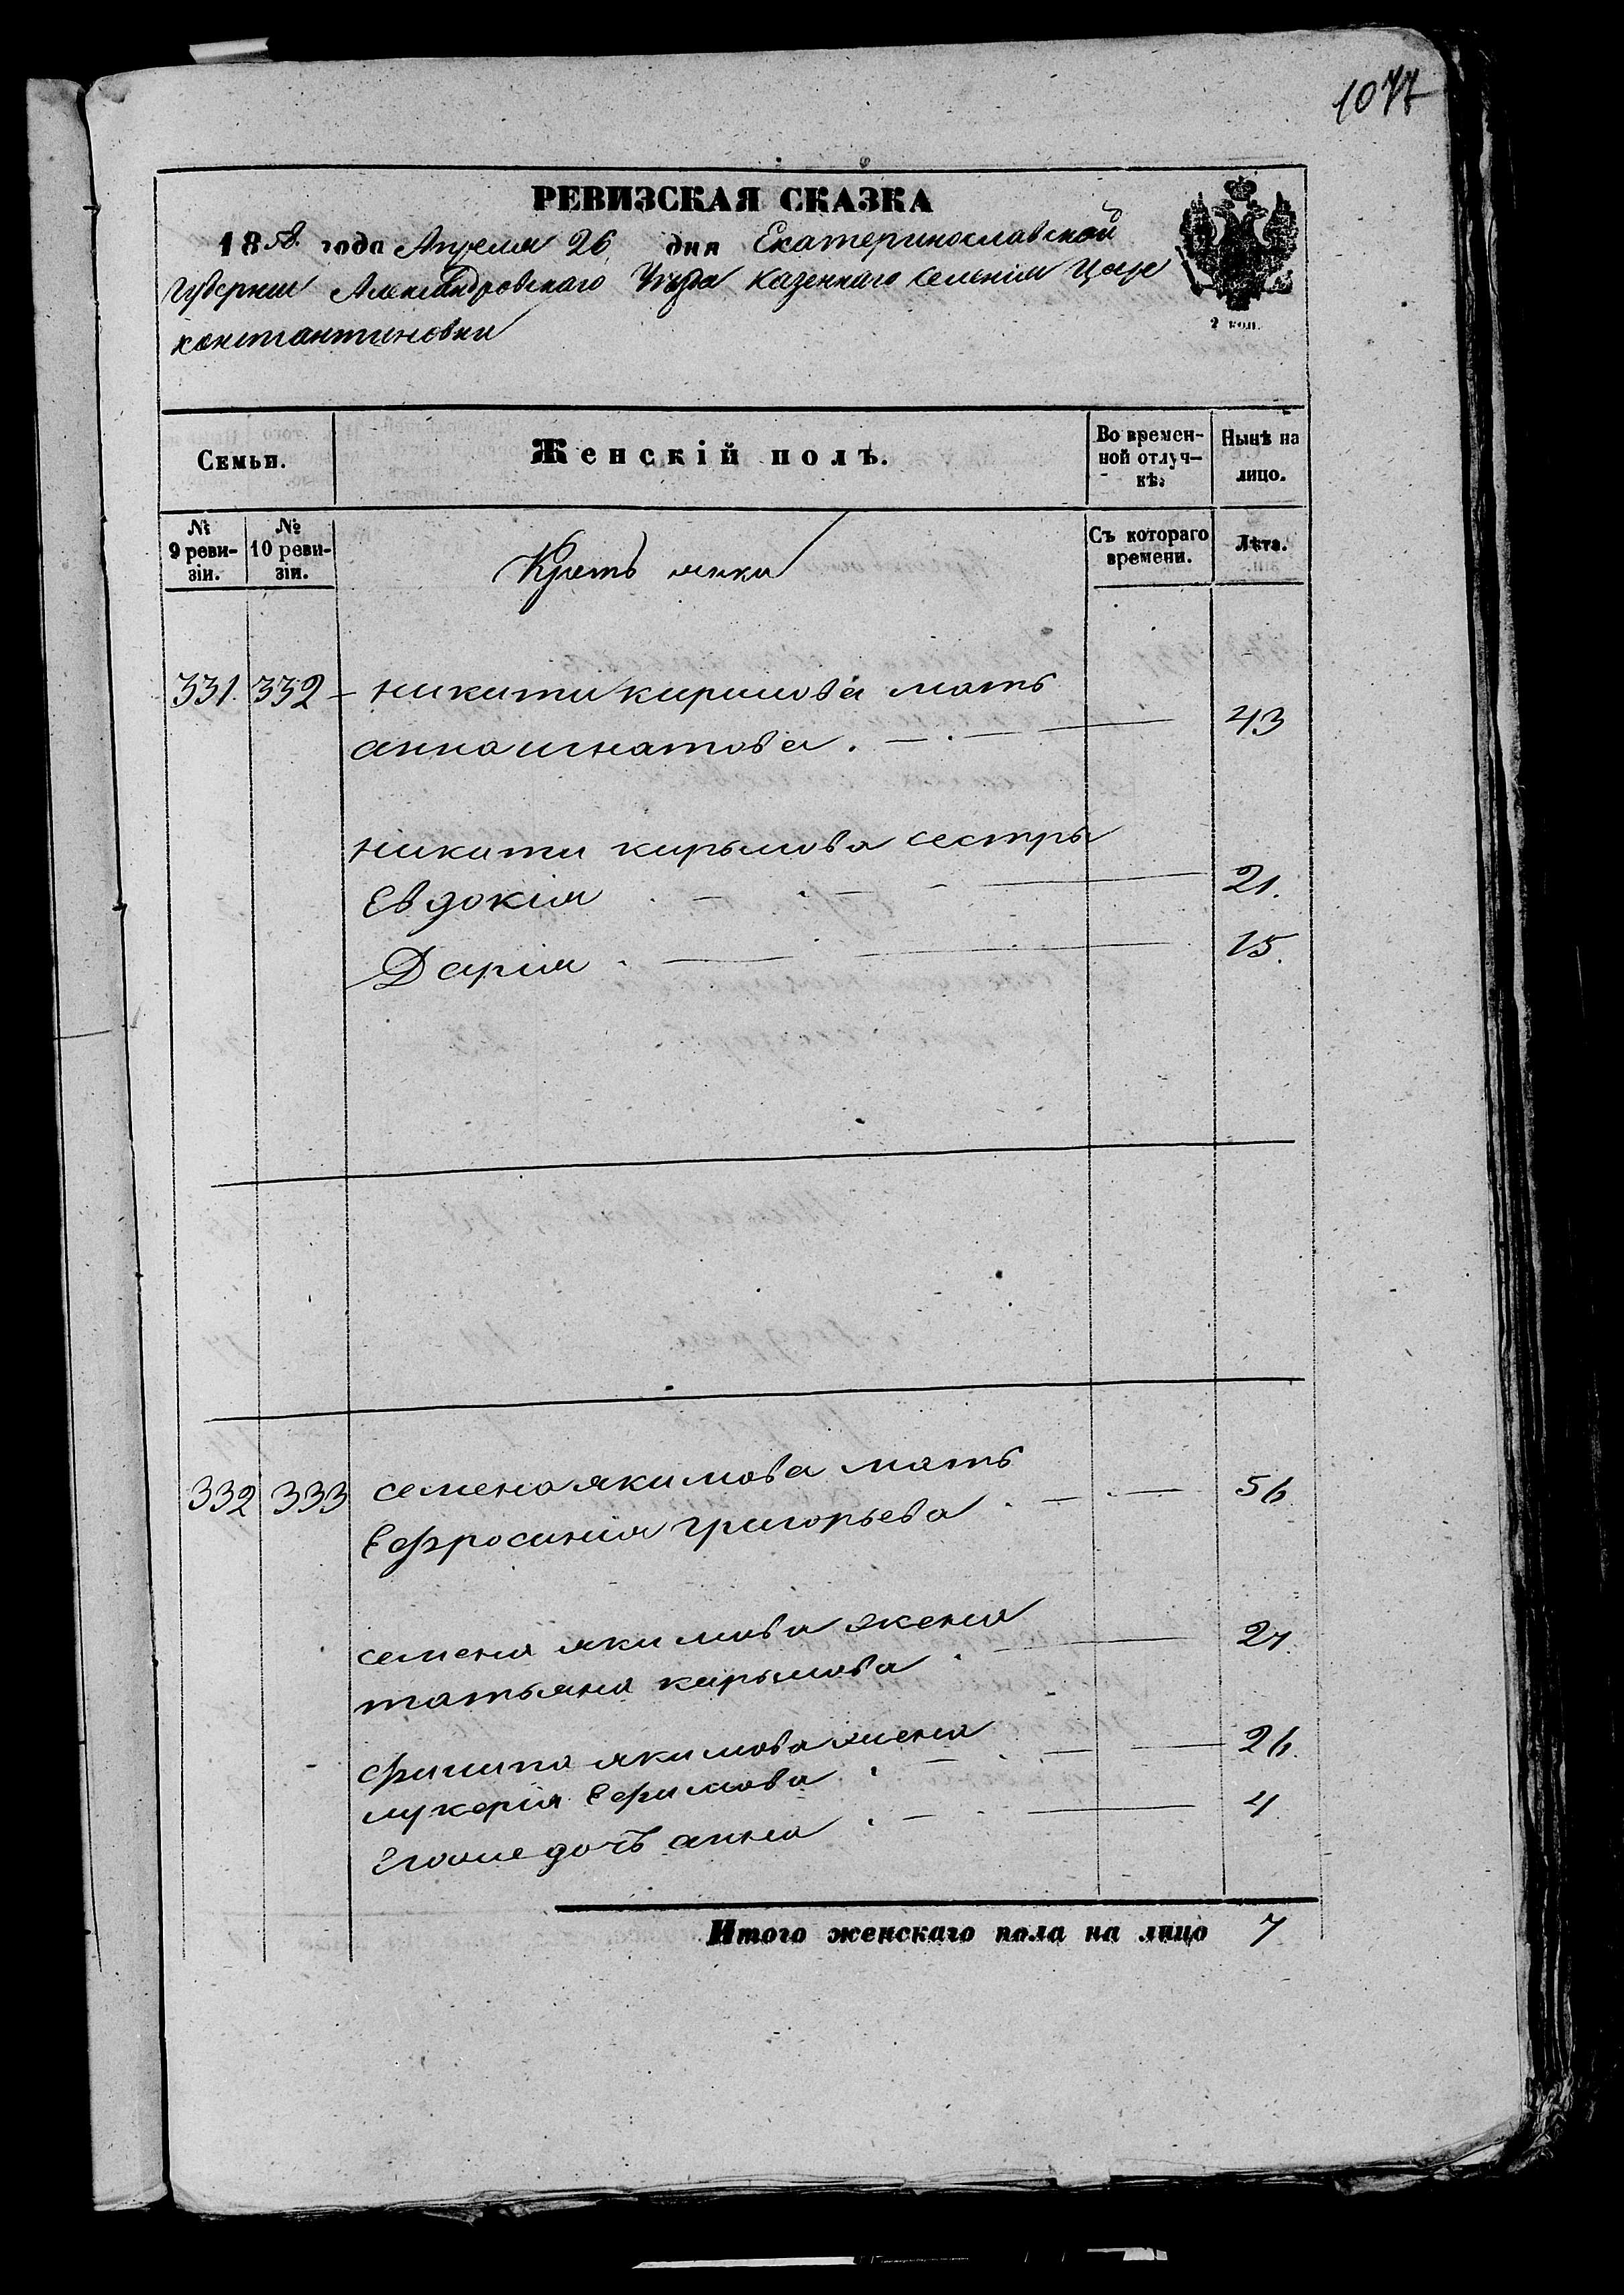 1077
РЕВИЗСКАЯ СКАЗКА
1858 года Апреля 26 дня Екатеринославской
Губернии Александровского Уезда Казеннаго селенія Царе
константиновки
2 коп.
Семьи.
Женскій полъ.
Во времен-
ной отлуч-
кѣ.
Нынѣ на
лицо.
№
9 реви-
зіи.
№
10 реви-
зіи.
Съ котораго
времени.
Лѣта.
331. 332 никити кирилова мать
анна игнатова 43
никити кирылова сестры
Евдокія 21.
Дарія 15.
332 333 семена якимова мать
Ефросинія григорьева 56
семена якимова жена
татьяна кирылова 27.
филипа якимова жена
лукерія Ефимова 26.
Егоже дочъ анна 4
Итого женскаго пола на лицо 7